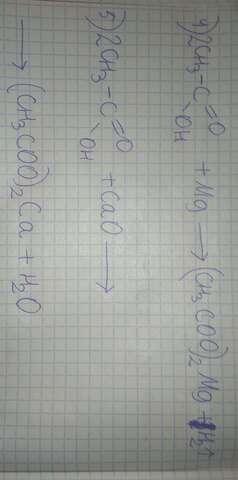 4) 2CH₃-C=O
OH
+ Mg ⟶ (CH₃COO)₂Mg + H₂↑
5) 2CH₃-C=O
OH
+ CaO ⟶
⟶ (CH₃COO)₂Ca + H₂O